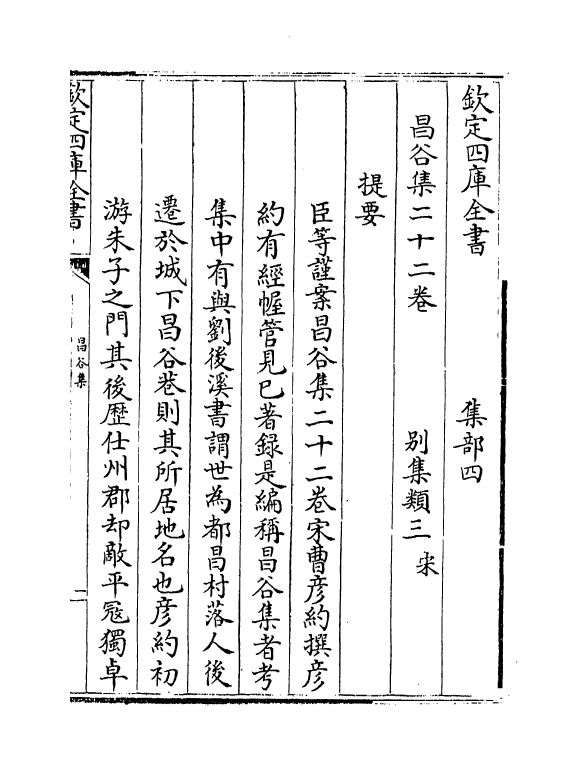 欽定四庫全書　集部四
昌谷集二十二卷　别集類三宋
提要
臣等謹案昌谷集二十二卷宋曹彦約撰彦
約有經幄管見已著録是編稱昌谷集者考
集中有與劉後溪書謂世為都昌村落人後
遷於城下昌谷巷則其所居地名也彦約初
游朱子之門其後歴仕州郡却敵平冦獨卓
欽定四庫全書
昌谷集